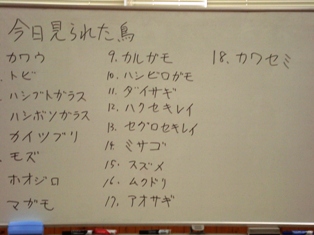 今日見られた鳥
カワウ
トビ
ハシブトガラス
ハシボソガラス
カイツブリ
モズ
ホオジロ
マガモ
9. カルガモ
10. ハシビロガモ
11. ダイサギ
12. ハクセキレイ
13. セグロセキレイ
14. ミサゴ
15. スズメ
16. ムクドリ
17. アオサギ
18. カワセミ